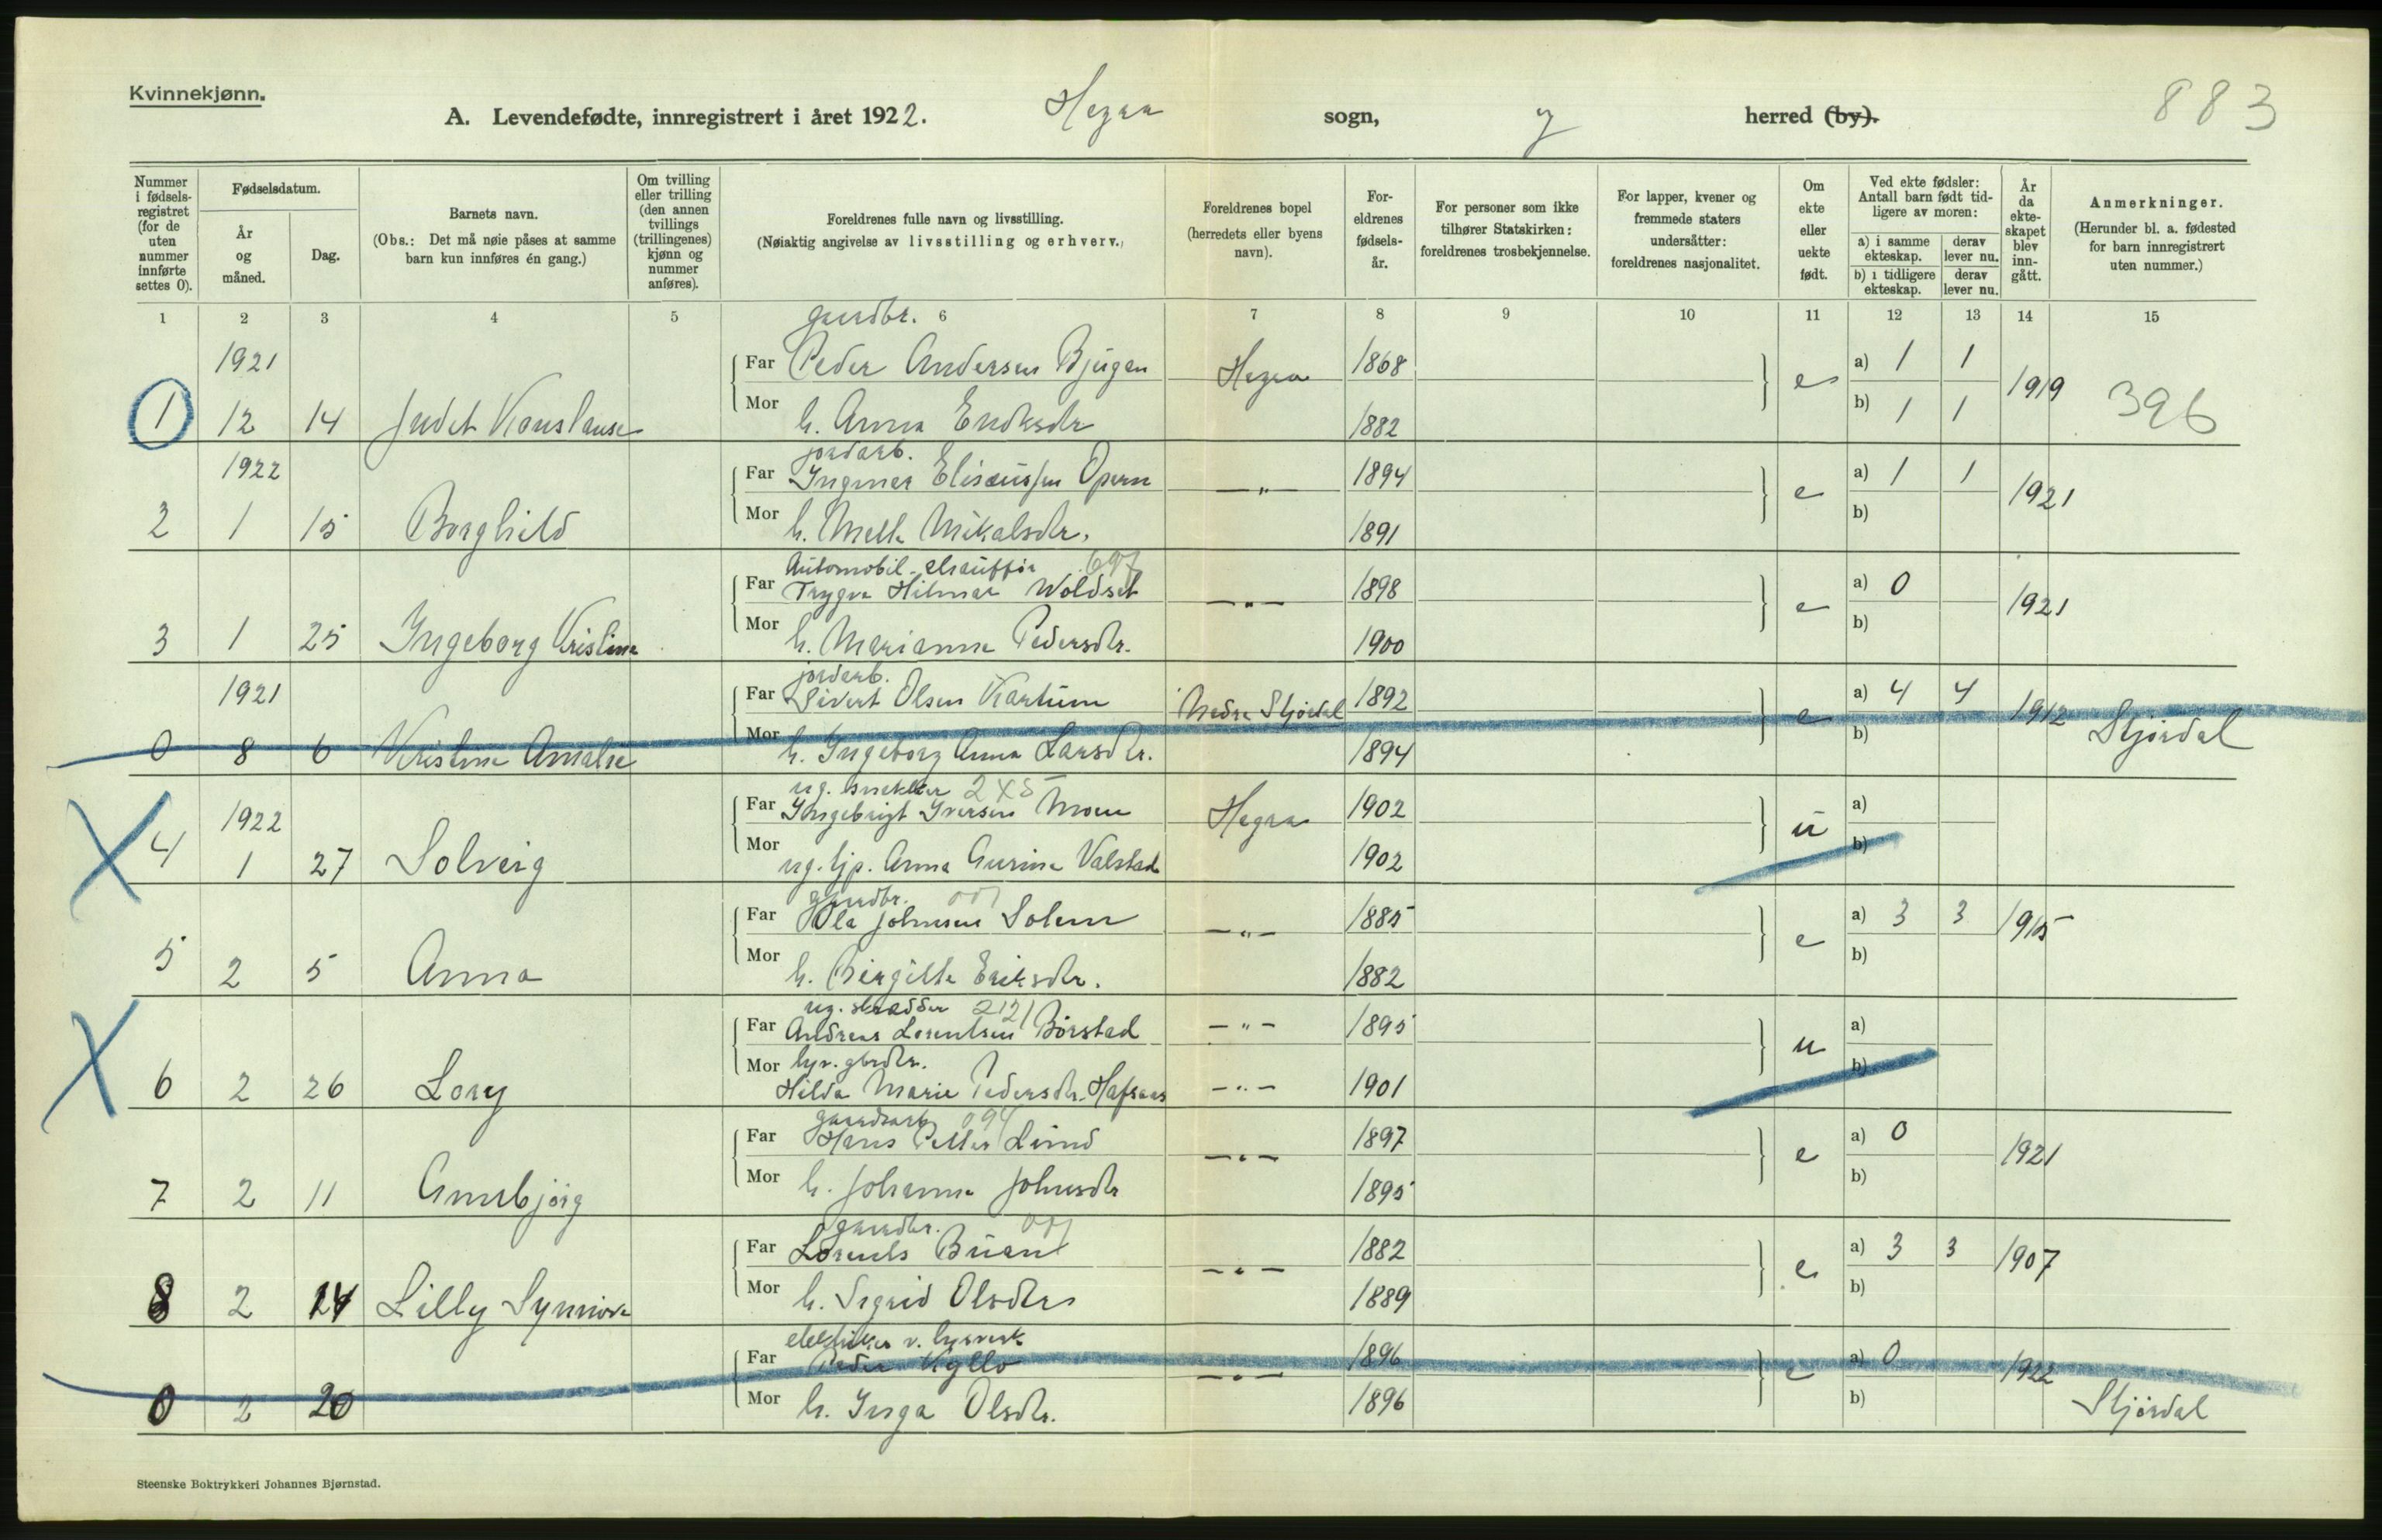 Kvinnekjønn.
A. Levendefødte, innregistrert i året 1922. Hegra sogn, herred (by).
883
Nummer i fødselsregistret (for de uten nummer innførte settes 0).
Fødselsdatum.
År og måned.
Dag.
Barnets navn.
(Obs.: Det må nøie påses at samme barn kun innføres én gang.)
Om tvilling eller trilling (den annen tvillings (trillingenes) kjønn og nummer anføres).
Foreldrenes fulle navn og livsstilling.
(Nøiaktig angivelse av livsstilling og erhverv.)
Foreldrenes bopel (herredets eller byens navn).
Foreldrenes fødselsår.
For personer som ikke tilhører Statskirken: foreldrenes trosbekjennelse.
For lapper, kvener og fremmede staters undersåtter: foreldrenes nasjonalitet.
Om ekte eller uekte født.
Ved ekte fødsler: Antall barn født tidligere av moren:
a) i samme ekteskap. derav lever nu.
b) i tidligere ekteskap. derav lever nu.
År da ekteskapet blev inngått.
Anmerkninger.
(Herunder bl. a. fødested for barn innregistrert uten nummer.)
1 2 3 4 5 6 7 8 9 10 11 12 13 14 15
gaardbr.
1921 Far Peder Andersen Bjugan Hegra 1868 e a) 1 1 1919 396
1 12 14 Judet Konstanse Mor h. Anna Eriksdr 1882 b) 1 1
jordarb.
1922 Far Ingmar Elisæussen Opem —"— 1894 e a) 1 1 1921
2 1 15 Borghild Mor h. Mette Mikalsdr. 1891 b)
Automobil-chauffør 697
Far Trygve Hilmar Woldset —"— 1898 e a) 0 1921
3 1 25 Ingeborg Kristine Mor h. Marianne Pedersdr. 1900 b)
jordarb.
1921 Far Sivert Olsen Kartum Nedre Stjørdal 1892 e a) 4 4 1912 Stjørdal
0 8 6 Kristine Amalie Mor h. Ingeborg Anna Larsdr. 1894 b)
ug. snekker 2X5
1922 Far Ingebrigt Iversen Moen Hegra 1902 u a)
4 1 27 Solveig Mor ug. tjp. Anna Gurine Valstad 1902 b)
gaardbr. 001
Far Ola Johnsen Solem —"— 1885 e a) 3 3 1915
5 2 5 Anna Mor h. Birgitte Eriksdr. 1882 b)
ug. skrædder 2121
Far Andreas Lorentsen Børstad —"— 1895 u a)
Mor hjv. gbrdtr.
6 2 26 Lory Hilda Marie Pedersdr. Hafsaas —"— 1901 b)
gaardsarb. 094
Far Hans Petter Lund —"— 1897 e a) 0 1921
7 2 11 Annbjörg Mor h. Johanna Johnsdr 1895 b)
gaardbr. 001
Far Lorents Buan —"— 1882 e a) 3 3 1907
8 2 14 Lilly Synnöve Mor h. Sigrid Olsdtr 1889 b)
elektriker v. lysverk
Far Peder Kyllo —"— 1896 e a) 0 1922
0 2 20 Mor h. Inga Olsdr. 1896 b) Stjørdal
Steenske Boktrykkeri Johannes Bjørnstad.